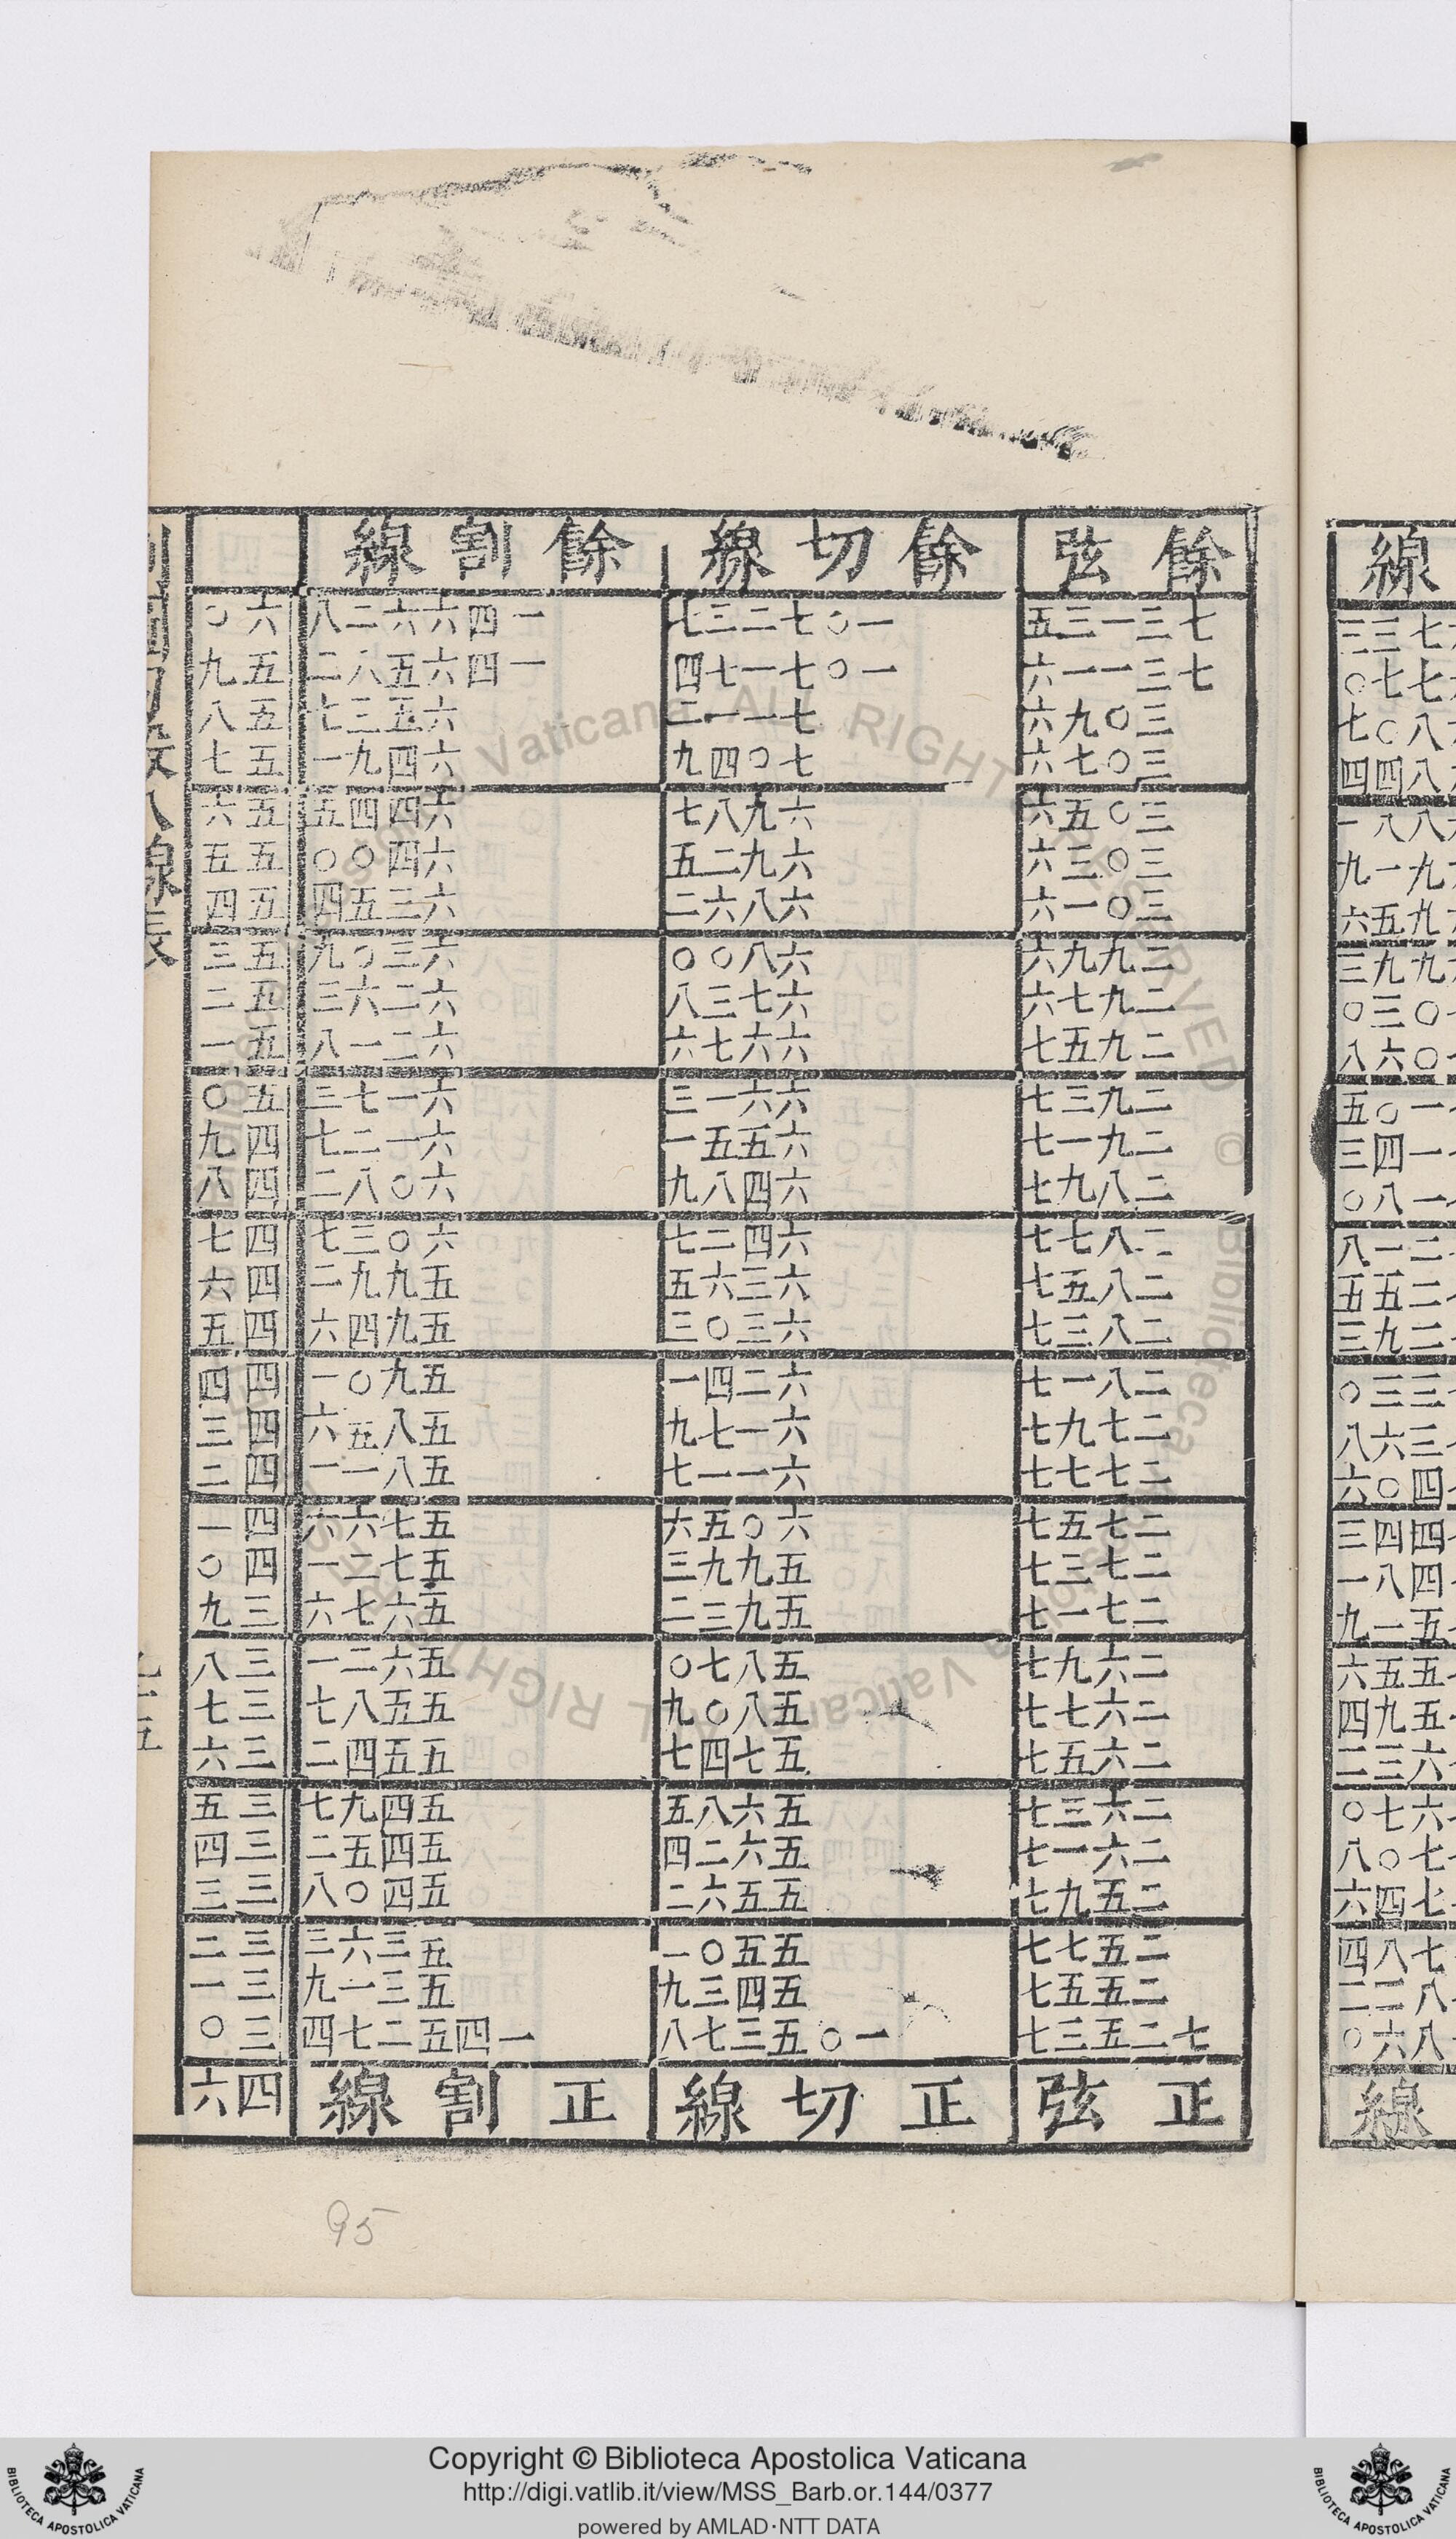 餘弦 餘切線 餘割線
七三一三五 一〇七二三七 一四六六二八 六〇
七三一一六 一〇七一七四 一四六五八二 五九
三〇九六 七一一二 六五三七 五八
三〇七六 七〇四九 六四九一 五七
三〇五六 六九八七 六四四五 五六
三〇三六 六九二五 六四〇〇 五五
三〇一六 六八六二 六三五四 五四
二九九六 六八〇〇 六三〇九 五三
二九七六 六七三八 六二六三 五二
二九五七 六六七六 六二一八 五一
二九三七 六六一三 六一七三 五〇
二九一七 六五五一 六一二七 四九
二八九七 六四八九 六〇八二 四八
二八七七 六四二七 六〇三七 四七
二八五七 六三六五 五九九二 四六
二八三七 六三〇三 五九四六 四五
二八一七 六二四一 五九〇一 四四
二七九七 六一七九 五八五六 四三
二七七七 六一一七 五八一一 四二
二七五七 六〇五六 五七六六 四一
二七三七 五九九三 五七二一 四〇
二七一七 五九三二 五六七六 三九
二六九七 五八七〇 五六二一 三八
二六七七 五八〇九 五五八七 三七
二六五七 五七四七 五五四二 三六
二六三七 五六八五 五四九七 三五
二六一七 五六二四 五四五二 三四
二五九七 五五六二 五四〇八 三三
二五七七 五五〇一 五三六三 三二
二五五七 五四三九 五三一九 三一
七二五三七 一〇五三七八 一四五二七四 三〇
正弦 正切線 正割線 四六
95
Copyright © Biblioteca Apostolica Vaticana
http://digi.vatlib.it/view/MSS_Barb.or.144/0377
powered by AMLAD·NTT DATA